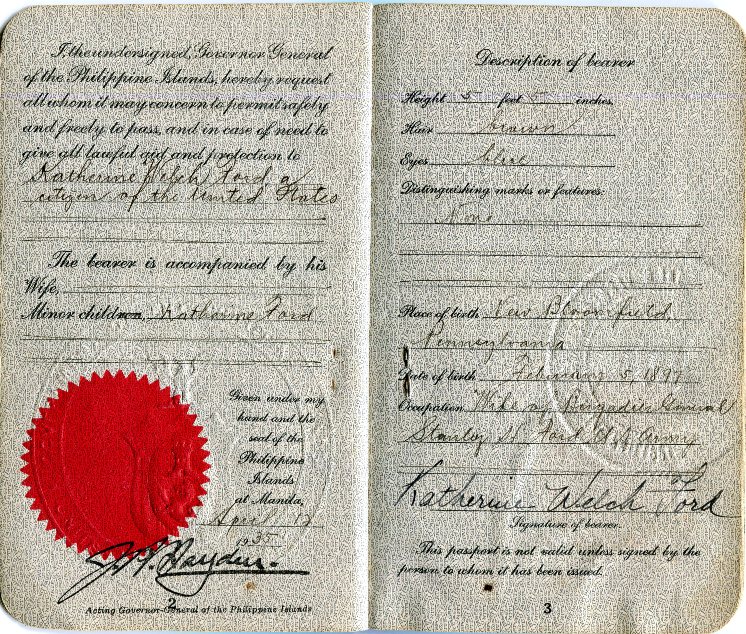 I, the undersigned, Governor General
of the Philippine Islands, hereby request
all whom it may concern to permit safely
and freely to pass, and in case of need to
give all lawful aid and protection to
Katherine Welch Ford a
citizen of the United States
The bearer is accompanied by his
Wife,
Minor children, Katharine Ford
Given under my
hand and the
seal of the
Philippine
Islands
at Manila,
April 12
1935
J. R. Hayden
Acting Governor-General of the Philippine Islands
2
Description of bearer
Height 5 feet 5 inches,
Hair brown
Eyes blue
Distinguishing marks or features:
None
Place of birth New Bloomfield,
Pennsylvania
Date of birth February 5, 1899
Occupation Wife of Brigadier General
Stanley H. Ford U.S. Army
Katherine Welch Ford
Signature of bearer.
This passport is not valid unless signed by the
person to whom it has been issued.
3